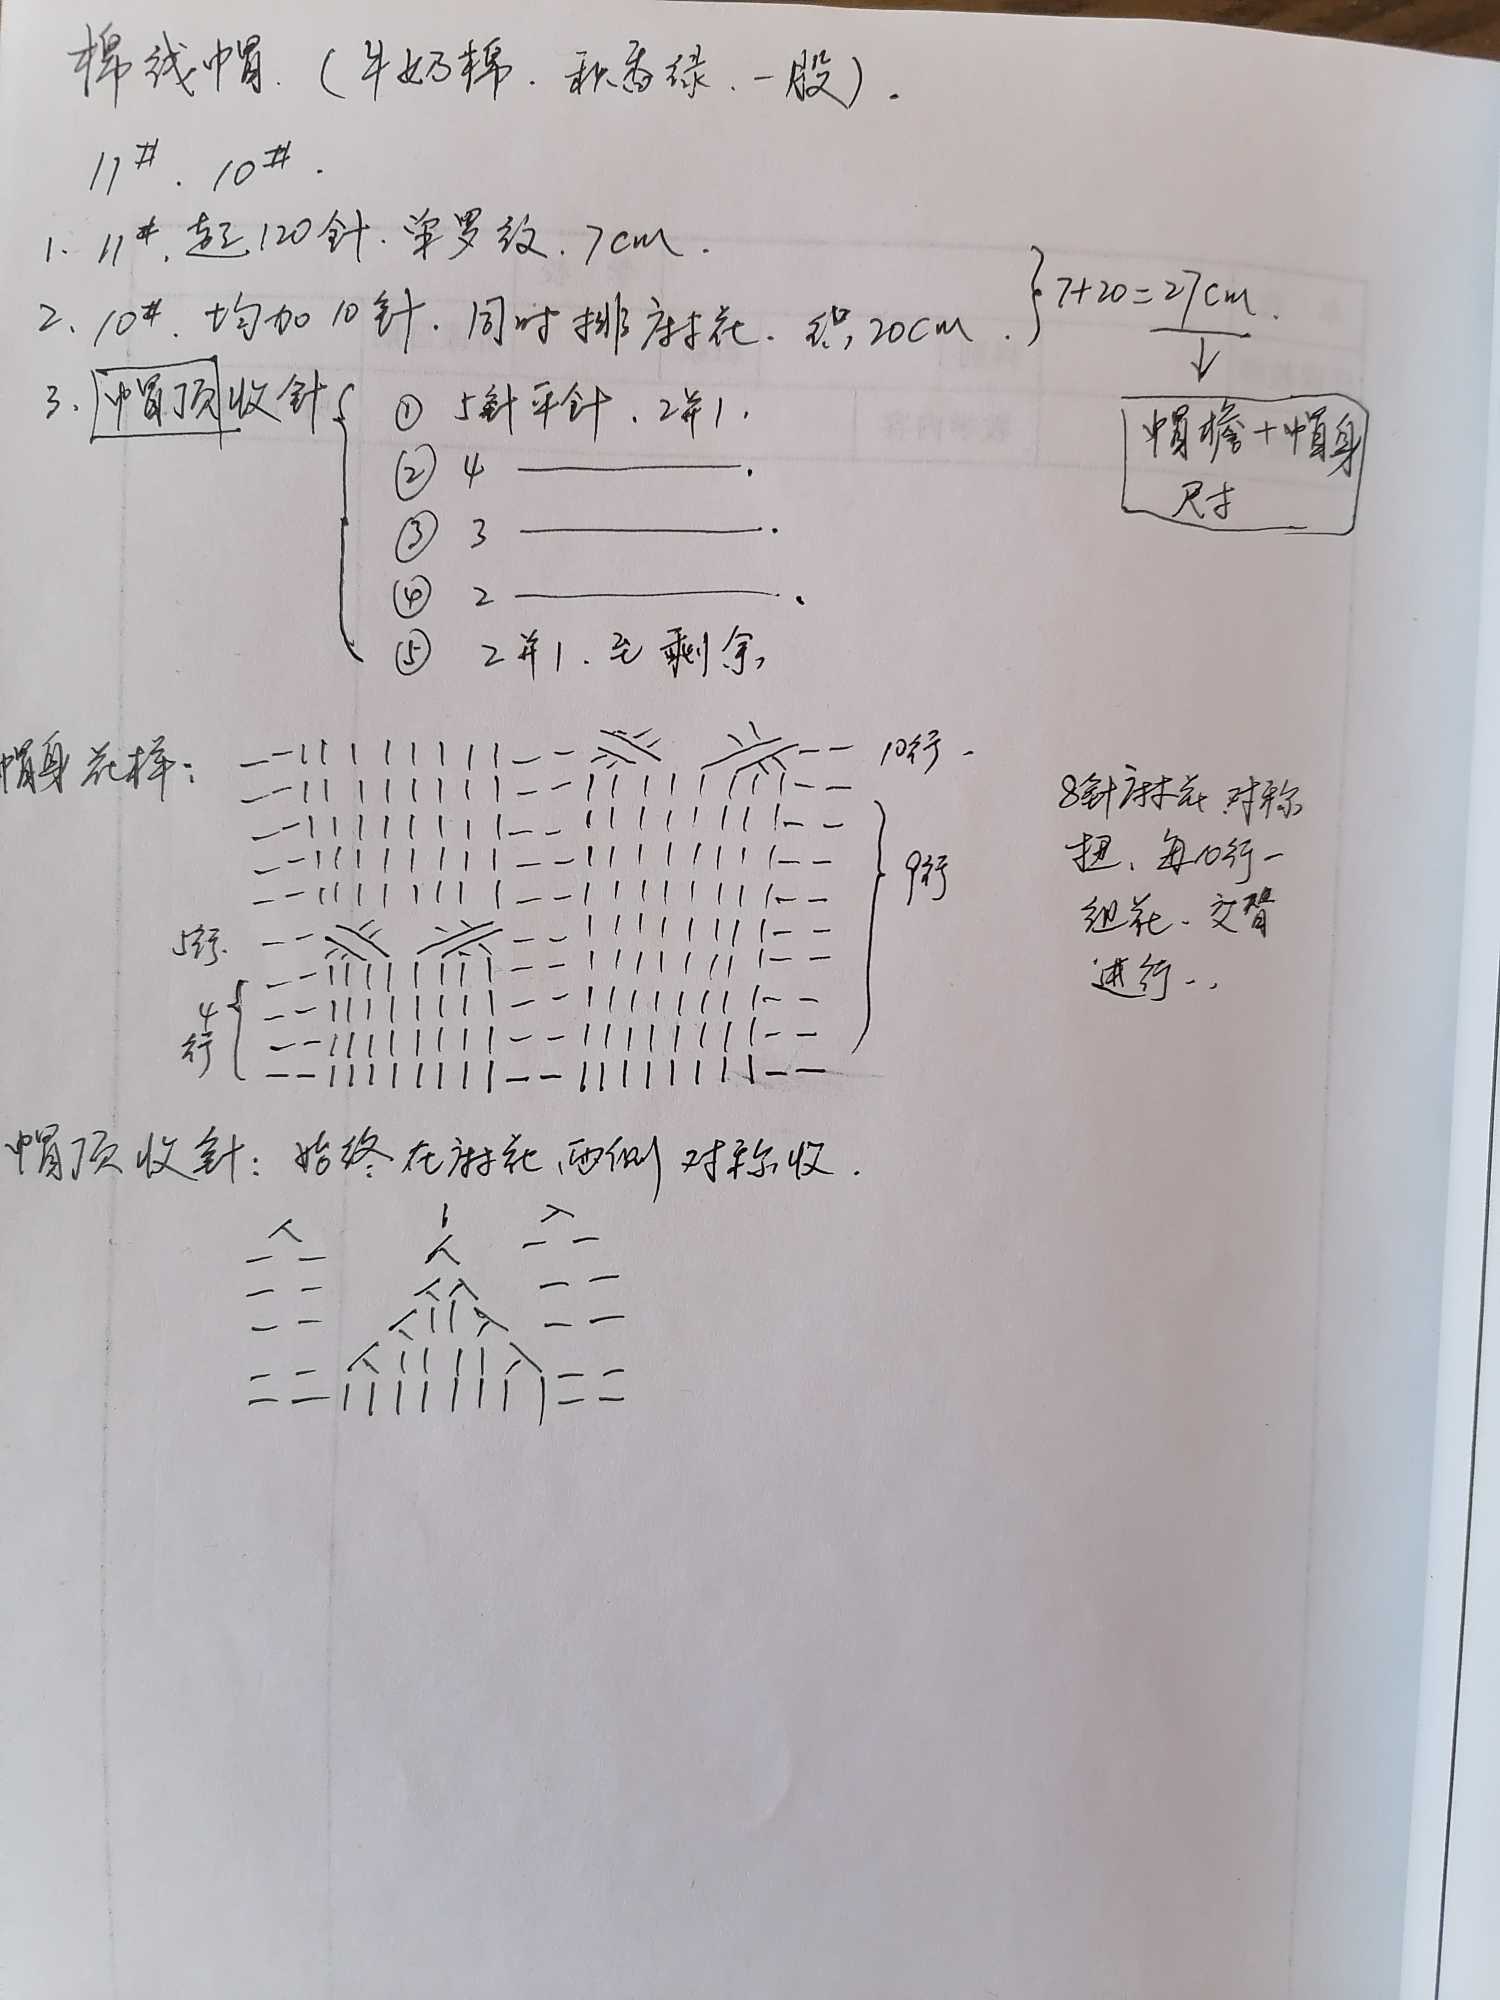 棉线帽.(牛奶棉.秋香绿.一股).
11#.10#.
1.11#.起120针.单罗纹.7cm.
2、10#.均加10针.同时排麻花.织20cm.
}7+20=27cm.
↓
帽檐+帽身
尺寸
3、帽顶收针{
① 5针平针.2并1.
② 4 ———.
③ 3 ———.
④ 2 ———.
⑤ 2并1.至剩余
帽身花样:
10行.
9行
5行.
4
行
8针麻花对称
扭、每10行一
组花.交替
进行..
帽顶收针:始终在麻花两侧对称收.